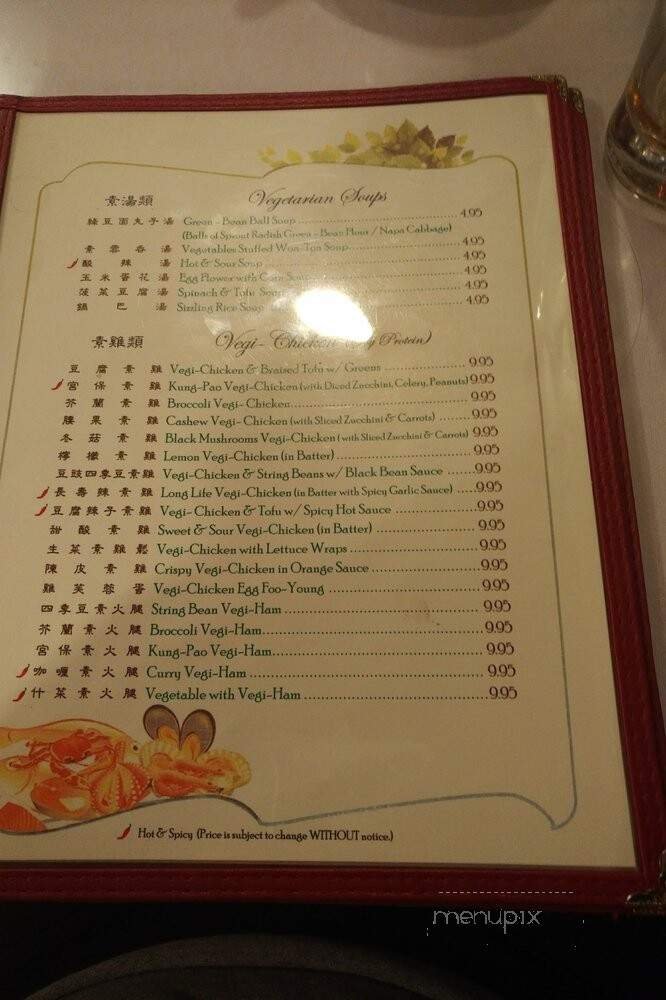 素湯類 Vegetarian Soups
綠豆面丸子湯 Green - Bean Ball Soup 4.95
(Balls of Sprout Radish Green - Bean Flour / Napa Cabbage)
素雲吞湯 Vegetables Stuffed Won-Ton Soup 4.95
酸辣湯 Hot & Sour Soup 4.95
玉米蛋花湯 Egg Flower with Corn Soup 4.95
菠菜豆腐湯 Spinach & Tofu Soup 4.95
鍋巴湯 Sizzling Rice Soup 4.95
素雞類 Vegi-Chicken Protein)
豆腐素雞 Vegi-Chicken & Braised Tofu w/ Greens 9.95
宮保素雞 Kung-Pao Vegi-Chicken (with Diced Zucchini, Celery, Peanuts) 9.95
芥蘭素雞 Broccoli Vegi- Chicken 9.95
腰果素雞 Cashew Vegi- Chicken (with Sliced Zucchini & Carrots) 9.95
冬菇素雞 Black Mushrooms Vegi-Chicken (with Sliced Zucchini & Carrots) 9.95
檸檬素雞 Lemon Vegi-Chicken (in Batter) 9.95
豆豉四季豆素雞 Vegi-Chicken & String Beans w/ Black Bean Sauce 9.95
長壽辣素雞 Long Life Vegi-Chicken (in Batter with Spicy Garlic Sauce) 9.95
豆腐辣子素雞 Vegi- Chicken & Tofu w/ Spicy Hot Sauce 9.95
甜酸素雞 Sweet & Sour Vegi-Chicken (in Batter) 9.95
生菜素雞鬆 Vegi-Chicken with Lettuce Wraps 9.95
陳皮素雞 Crispy Vegi-Chicken in Orange Sauce 9.95
雞芙蓉蛋 Vegi-Chicken Egg Foo-Young 9.95
四季豆素火腿 String Bean Vegi-Ham 9.95
芥蘭素火腿 Broccoli Vegi-Ham 9.95
宮保素火腿 Kung-Pao Vegi-Ham 9.95
咖喱素火腿 Curry Vegi-Ham 9.95
什菜素火腿 Vegetable with Vegi-Ham 9.95
Hot & Spicy (Price is subject to change WITHOUT notice.)
menupix